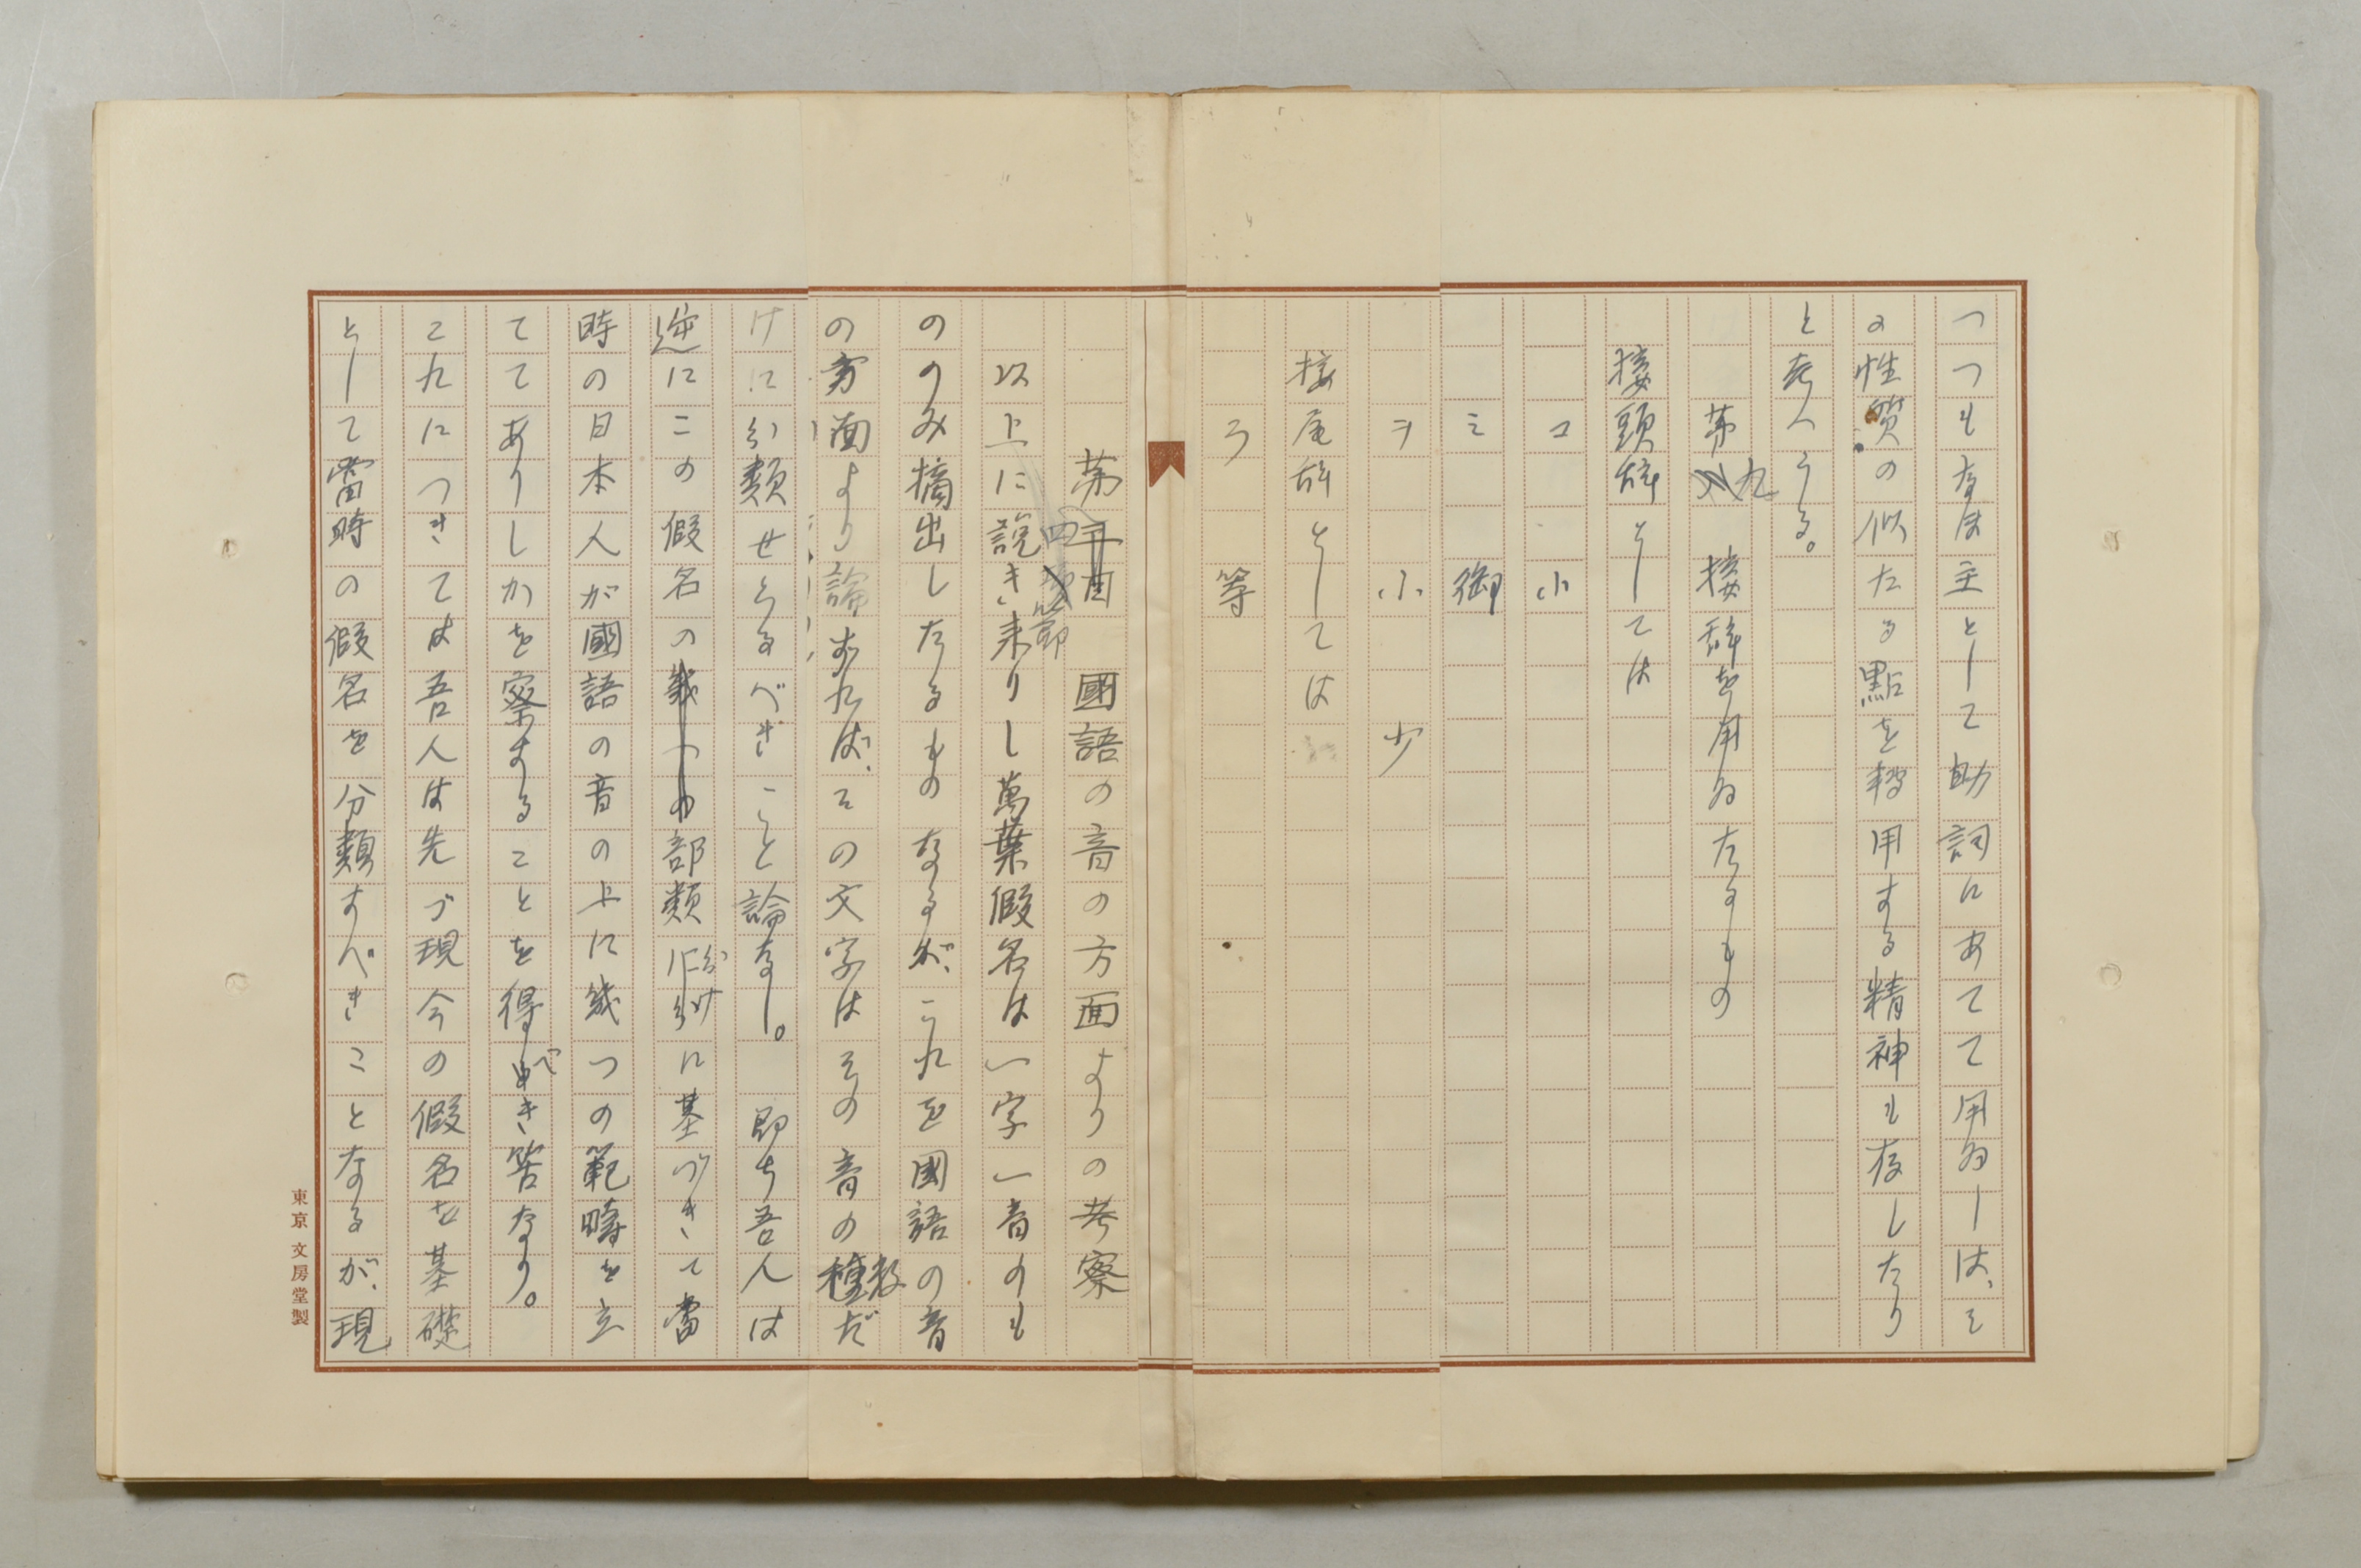 つつもなほ主として助詞にあてて用ゐしは、そ
の性質の似たる點を轉用する精神も存したり
と考へうる。
第九 接辞を用ゐたるもの
接頭辞としては
コ 小
ミ 御
ヲ 小 少
接尾辞としては
ラ 等
第四節 國語の音の方面よりの考察
以上に説き来りし萬葉假名は一字一音のも
ののみ摘出したるものなるが、これを國語の音
の方面より論ずれば、その文字はその音の種数だ
けに分類せらるべきこと論なし。 即ち吾人は
逆にこの假名の部類分けに基づきて當
時の日本人が國語の音の上に幾つの範疇を立
ててありしかを察することを得べき筈なり。
これにつきては吾人は先づ現今の假名を基礎
として當時の假名を分類すべきことなるが、現
東京 文房堂製